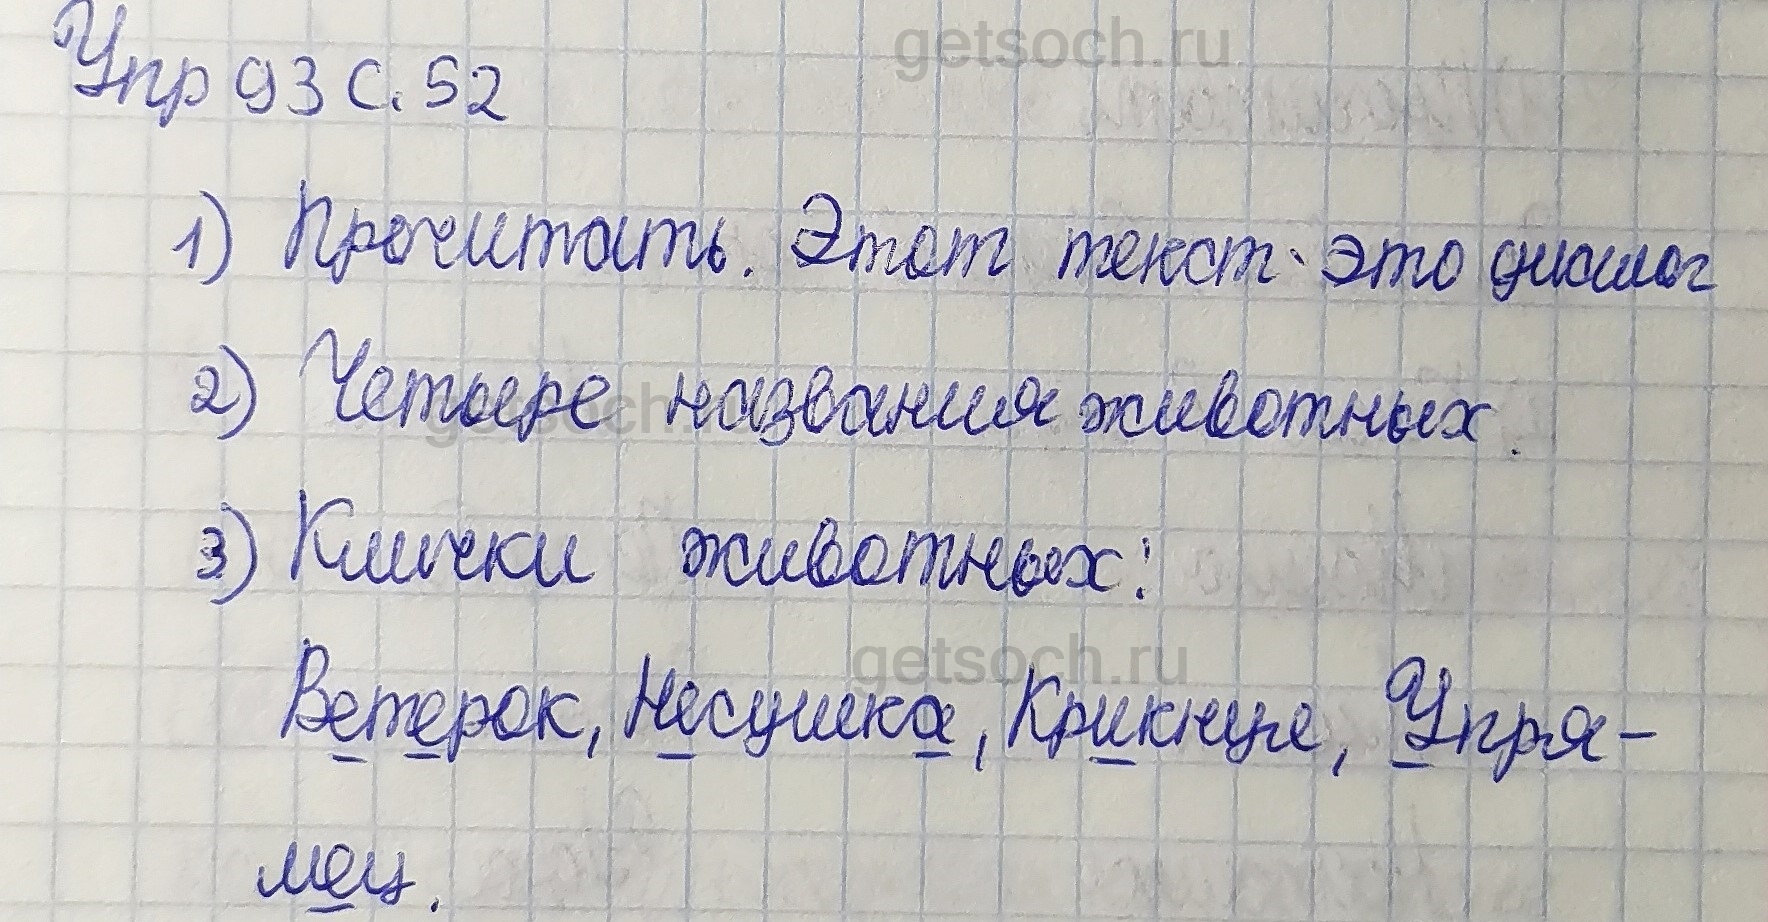 getsoch.ru
Упр 93 с. 52
1) Прочитать. Этот текст - это диалог
2) Четыре названия животных.
getsoch.ru
3) Клички животных:
getsoch.ru
Ветерок, Несушка, Крикнуце, Упря-
мец.